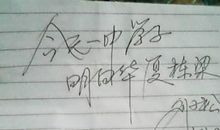 今天一中学子
明日华夏栋梁